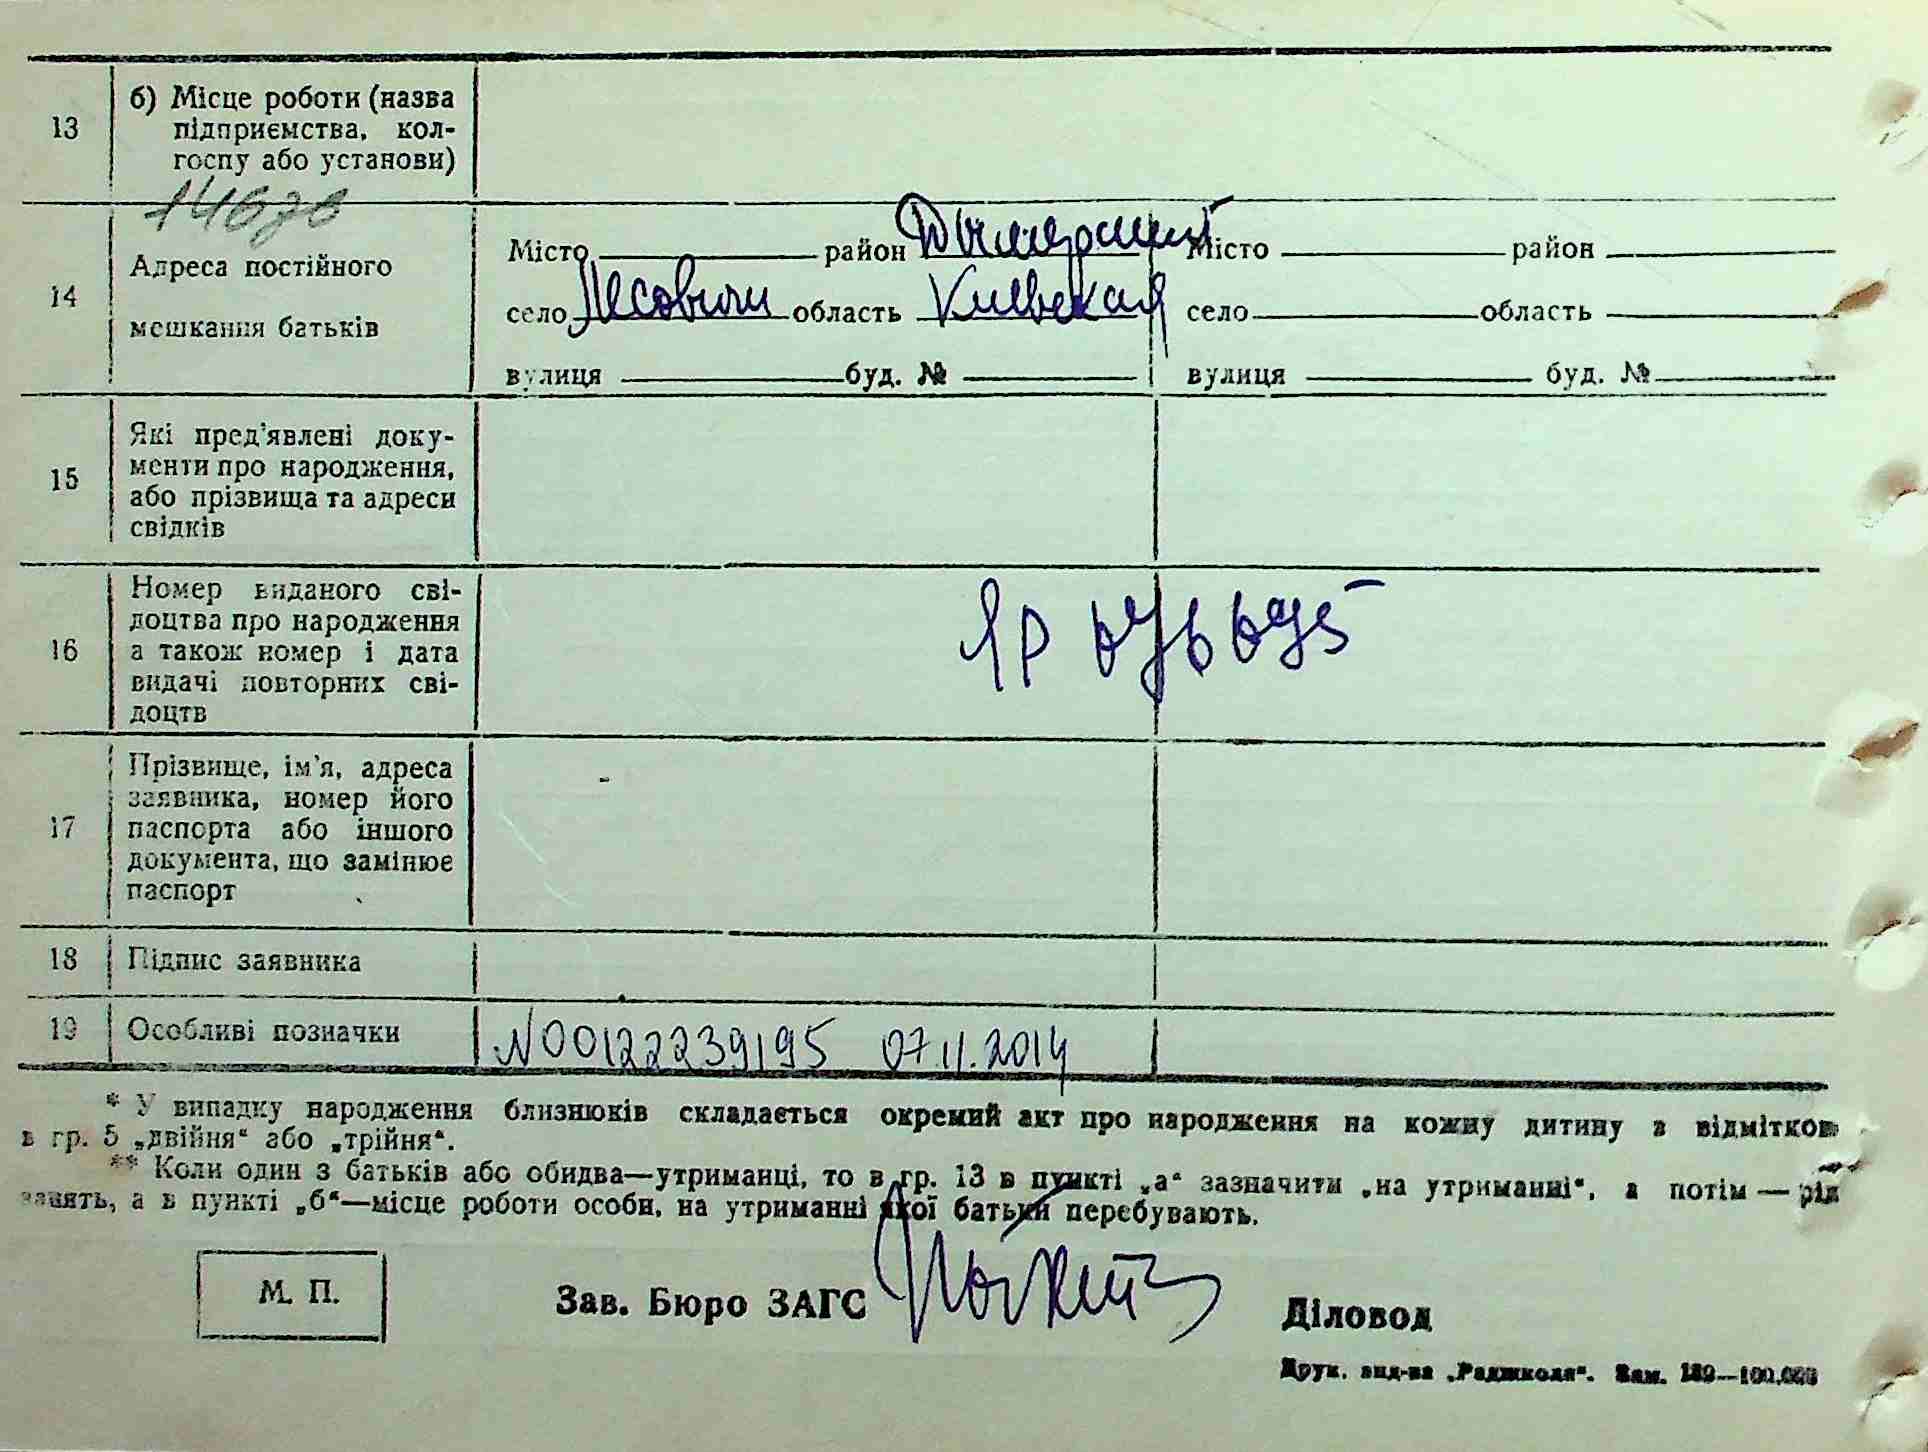 13
б) Місце роботи (назва
підприємства, кол-
госпу або установи)
14670
14
Адреса постійного
мешкання батьків
Місто район Дымерский
село Лесовичи область Киевская
вулиця буд. №
Місто район
село область
вулиця буд. №
15
Які пред'явлені доку-
менти про народження,
або прізвища та адреси
свідків
16
Номер виданого сві-
доцтва про народження
а також номер і дата
видачі повторних сві-
доцтв
17
Прізвище, ім'я, адреса
заявника, номер його
паспорта або іншого
документа, що замінює
паспорт
18
Підпис заявника
19
Особливі позначки
N00122239195 07.11.2014
* У випадку народження близнюків складається окремий акт про народження на кожну дитину з відміткою
в гр. 5 „двійня“ або „трійня“.
** Коли один з батьків або обидва—утриманці, то в гр. 13 в пункті „а“ зазначити „на утриманні“, а потім — рід
занять, а в пункті „б“—місце роботи особи, на утриманні якої батьки перебувають.
М. П.
Зав. Бюро ЗАГС
Діловод
Друк. вид-ва „Радшкола“. Зам. 189—100,000